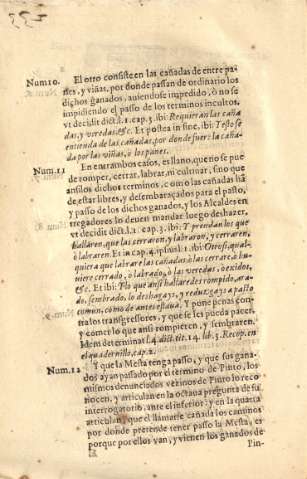 Num 10. El otro consiste en las cañadas de entre pa-
nes, y viñas, por donde passan de ordinario los
dichos ganados, auiendose impedido, ò no se
impidiendo el passo de los terminos incultos,
vt decidit dict. l. 1. cap. 3. ibi: Requieran las caña
das, y veredas, &c. Et postea in fine, ibi: Testo se
entienda de las cañadas, por donde fuere la caña
da por las viñas, ò los panes.
Num. 11 En entrambos casos, es llano, que no se pue
de romper, cerrar, labrar, ni cultiuar, sino que
ansi los dichos terminos, como las cañadas hã
de estar libres, y desembaraçados para el passo,
y passo de los dichos ganados, y los Alcaldes en
tregadores lo deuen mandar luego deshazer,
vt decidit dict. l. 1. cap. 3. ibi: T prendan los que
hallaren, que las cerraron, y labraron, y cerraren,
ò labraren. Et in cap. 4. ibi: Otrosi, qual-
quiera que labrare las cañadas à las cerrare, ò hu-
uiere cerrado, ò labrado, à las veredas, ò exidos,
&c. Et ibi: Tlo que ansi hallaredes rompido, ara-
do, sembrado, lo deshagays, y reduzgays a pasto
comun, como de antes estaua. Y pone penas con-
tra los transgressores, y que se les pueda pacer,
y comer lo que ansi rompieren, y sembraren.
Idem determinat l. 4. dict. tit. 14. lib. 3. Recop. en
el quadernillo, cap. 2.
Num. 12 Y que la Mesta tenga passo, y que sus gana-
dos ayan passado por el termino de Pinto, los
mismos denunciados vezinos de Pinto lo reco-
nocen, y articulan en la octaua pregunta de su
interrogatorio, ante el inferior: y en la quarta
articulan, que el llamarse cañada los caminos
por donde pretende tener passo la Mesta, es
porque por ellos van, y vienen los ganados de
Pin-